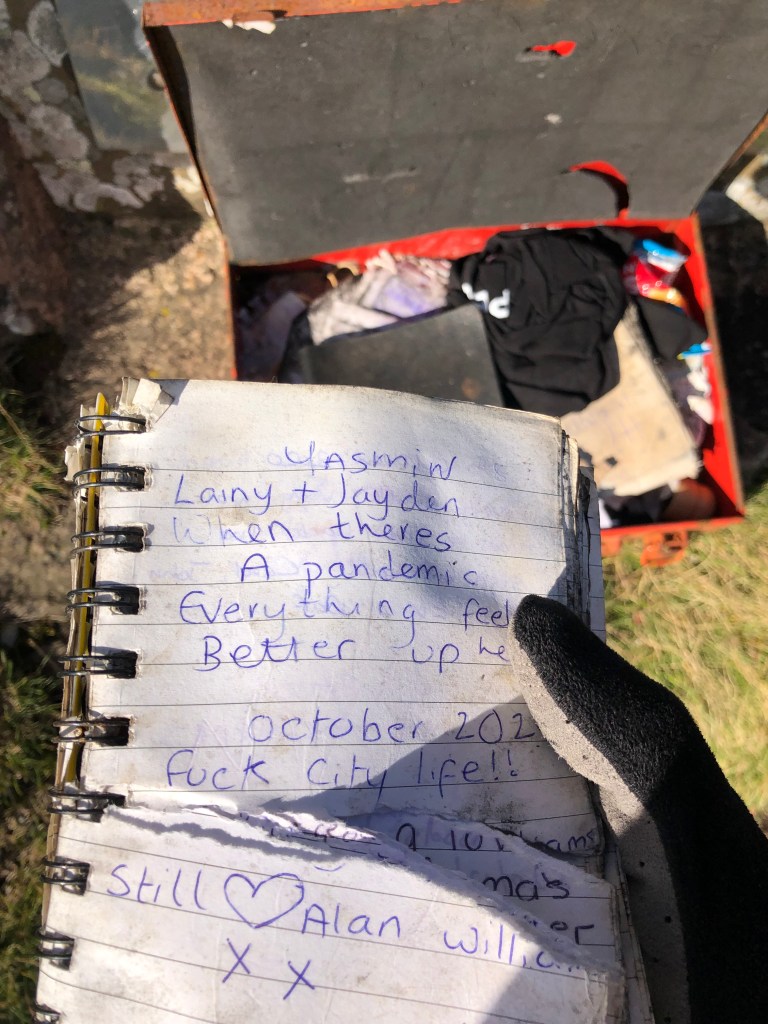 Yasmin
Lainy + Jayden
When theres
A pandemic
Everything feel
Better up he
October 202
fuck City life!!
mas
er
Still ♡ Alan Willia
x x